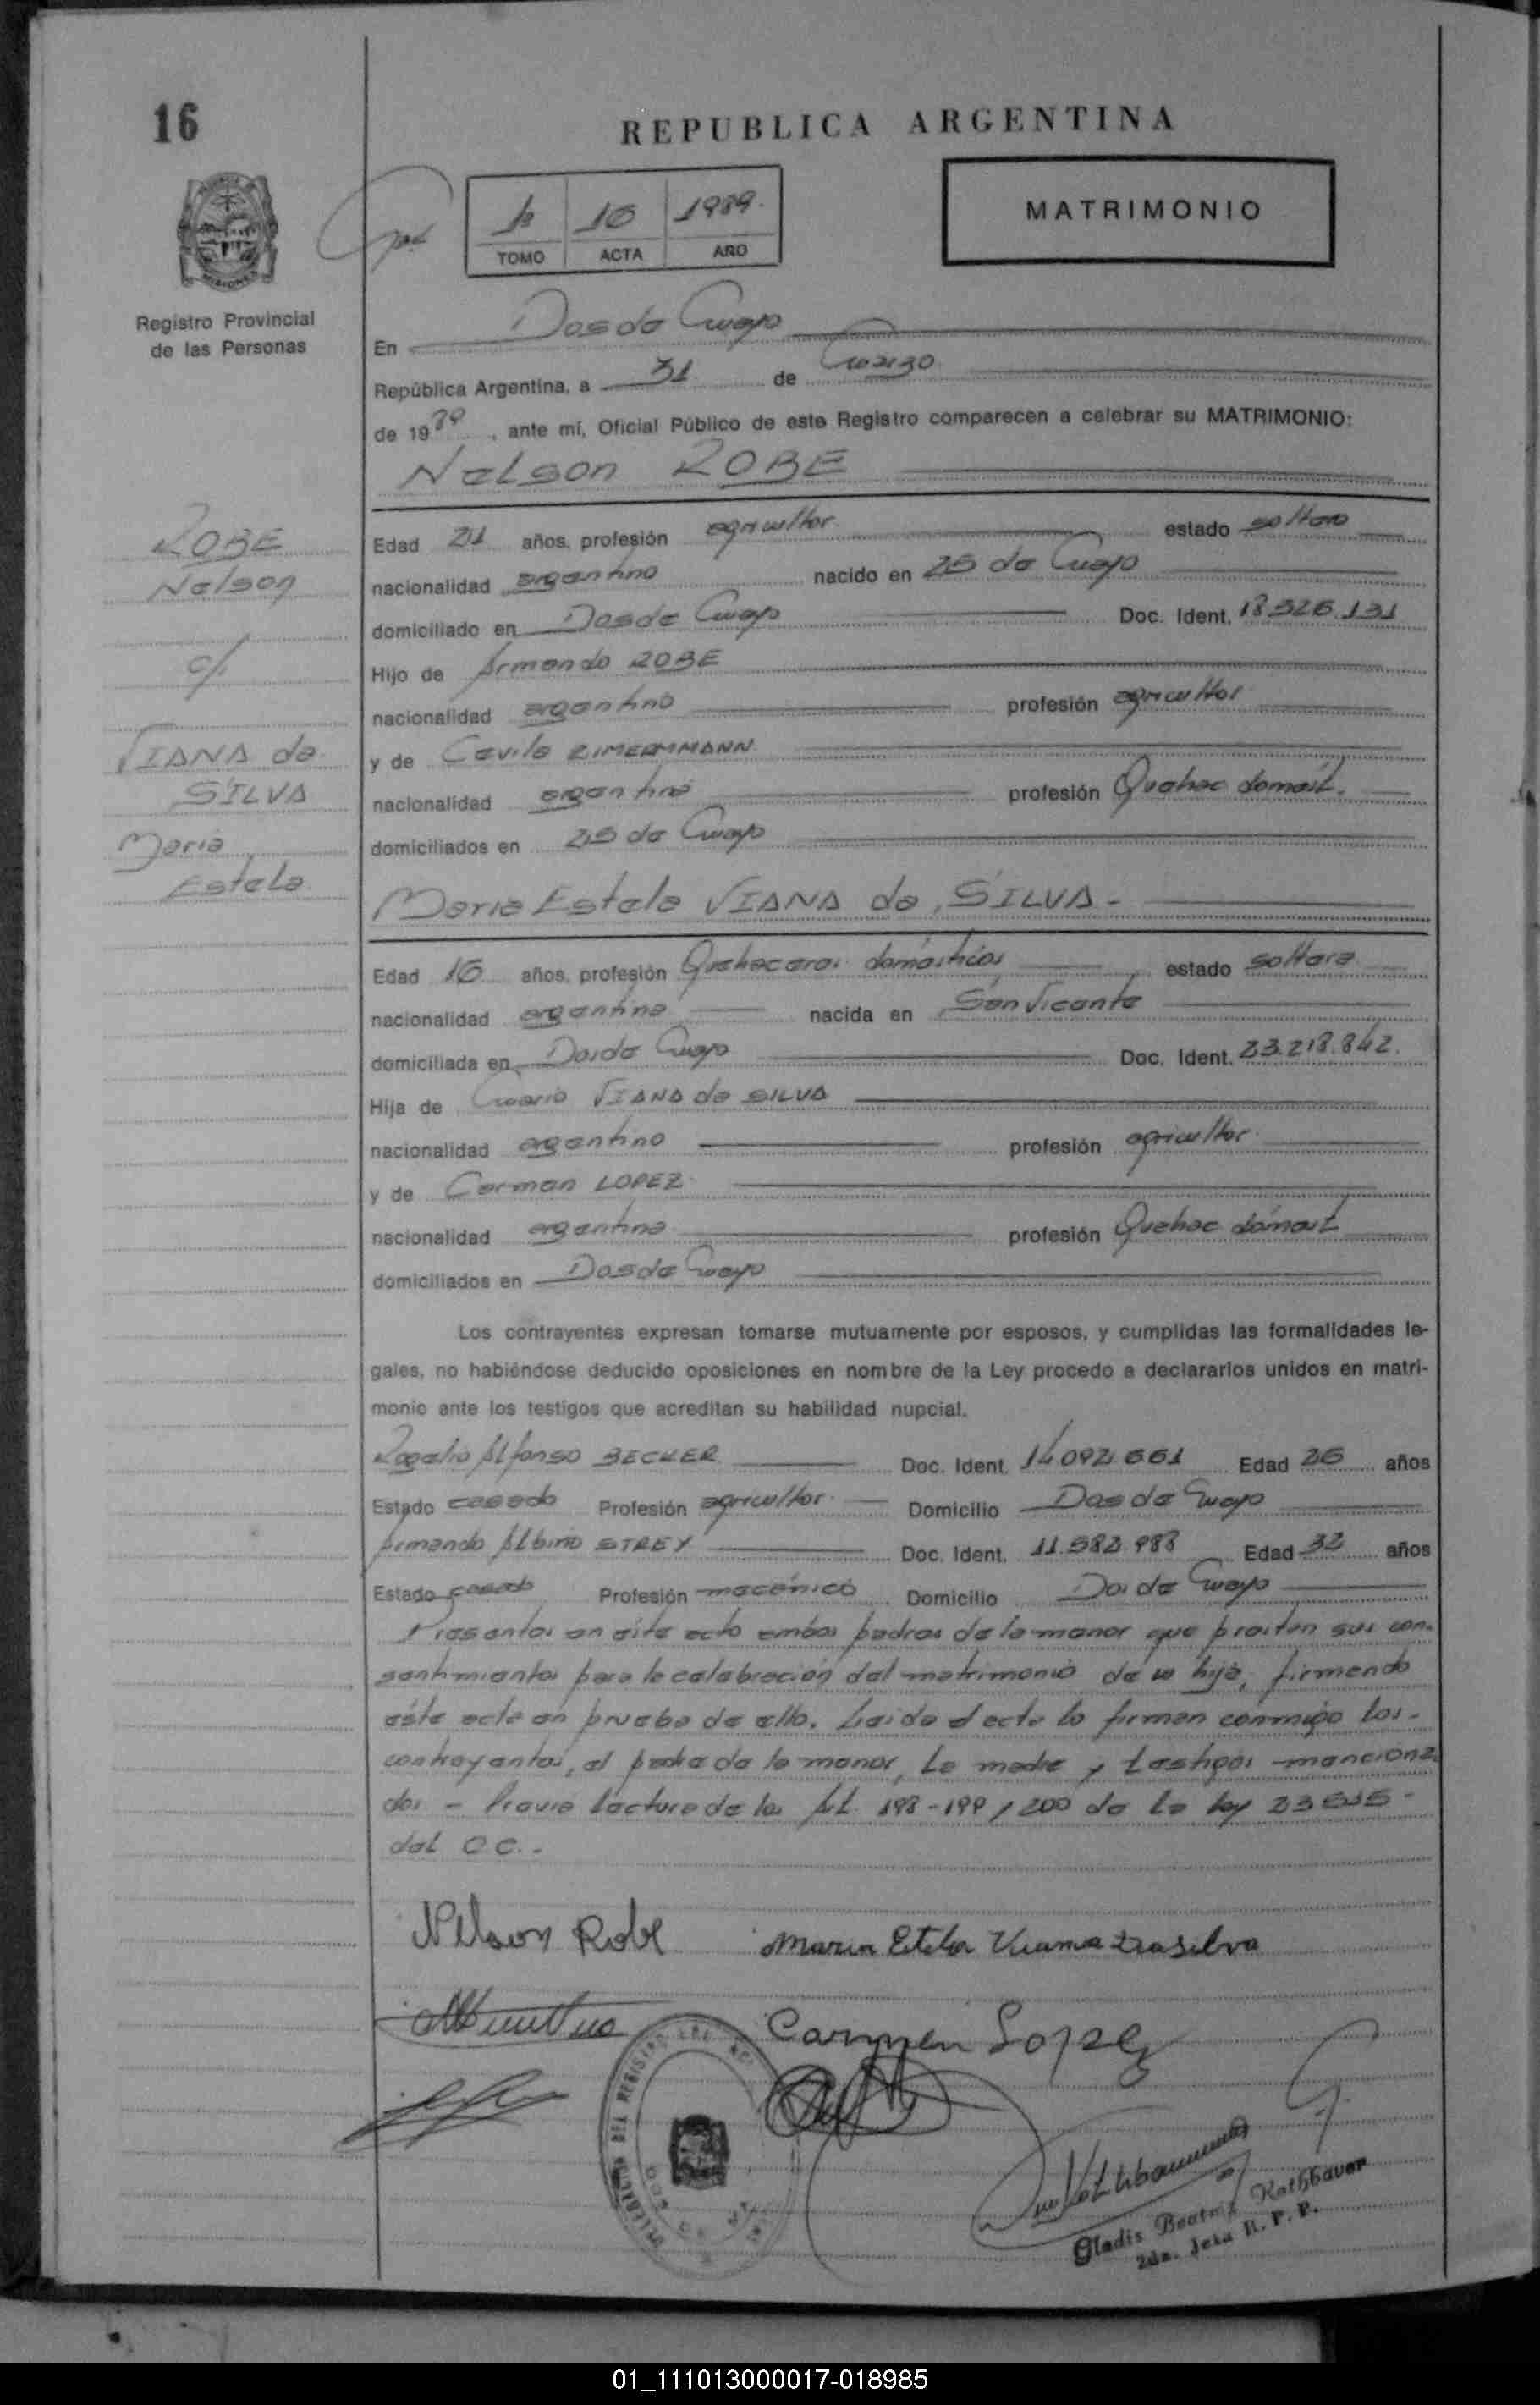 16
REPUBLICA ARGENTINA
MATRIMONIO
1º 16 1989.
TOMO ACTA AÑO
Registro Provincial
de las Personas
En Dos de Mayo
República Argentina, a 31 de marzo
de 1989, ante mí, Oficial Público de este Registro comparecen a celebrar su MATRIMONIO:
Nelson ROBE
ROBE
Nelson
c/
VIANA da
SILVA
Maria
Estela
Edad 21 años, profesión agricultor estado soltero
nacionalidad argentino nacido en 25 de Mayo
domiciliado en Dos de Mayo Doc. Ident. 18.526.131
Hijo de Armando ROBE
nacionalidad argentino profesión agricultor
y de ZIMERMMANN
nacionalidad argentina profesión Quehac domést.
domiciliados en 25 de Mayo
Maria Estela VIANA da SILVA -
Edad 16 años, profesión Quehaceres domésticos estado soltera
nacionalidad argentina nacida en San Vicente
domiciliada en Dos de Mayo Doc. Ident. 23.218.842.
Hija de Mario VIANA da SILVA
nacionalidad argentino profesión agricultor
y de Carmen LOPEZ
nacionalidad argentina profesión Quehac domést
domiciliados en Dos de Mayo
Los contrayentes expresan tomarse mutuamente por esposos, y cumplidas las formalidades le-
gales, no habiéndose deducido oposiciones en nombre de la Ley procedo a declararlos unidos en matri-
monio ante los testigos que acreditan su habilidad nupcial.
Rogelio Alfonso BECKER Doc. Ident. 14.092.661 Edad 26 años
Estado casado Profesión agricultor Domicilio Dos de Mayo
Armando Albino STREY Doc. Ident. 11.582.988 Edad 32 años
Estado casado Profesión mecánico Domicilio Dos de Mayo
Presentes en este acto ambos padres de la menor que prestan sus con-
sentimientos para la celebración del matrimonio de su hija, firmando
éste acta en prueba de ello. Leida el acta lo firman conmigo los -
contrayentes, el padre de la menor, la madre y testigos menciona
dos - Previa lectura de los Art. 198 - 199 / 200 de la ley 23515 -
del C.C. -
Nelson Robe Maria Estela Viana Da silva
Carmen Lopez
Gladis Beatriz Rathbauer
2da. Jefa R. P. P.
01_111013000017-018985